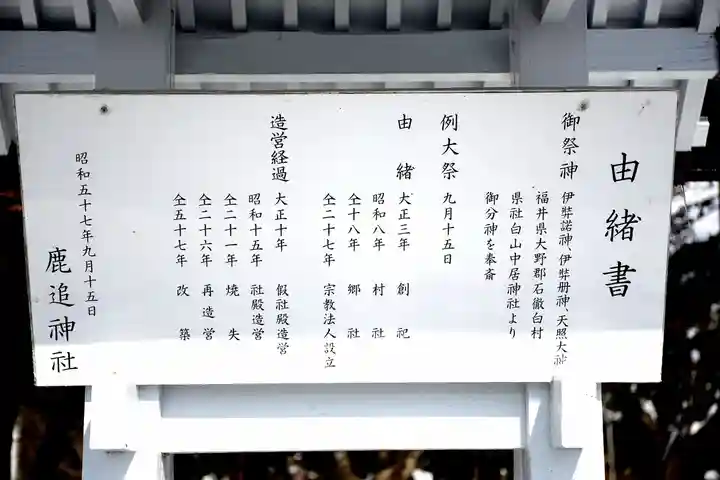 由緒書
御祭神 伊弊諾神、伊弊册神、天照大神
福井県大野郡石徹白村
県社白山中居神社より
御分神を奉斎
例大祭 九月十五日
由緒 大正三年 創祀
昭和八年 村社
仝十八年 郷社
仝二十七年 宗教法人設立
造営経過 大正十年 假社殿造営
昭和十五年 社殿造営
仝二十一年 焼失
仝二十六年 再造営
仝五十七年 改築
昭和五十七年九月十五日
鹿追神社